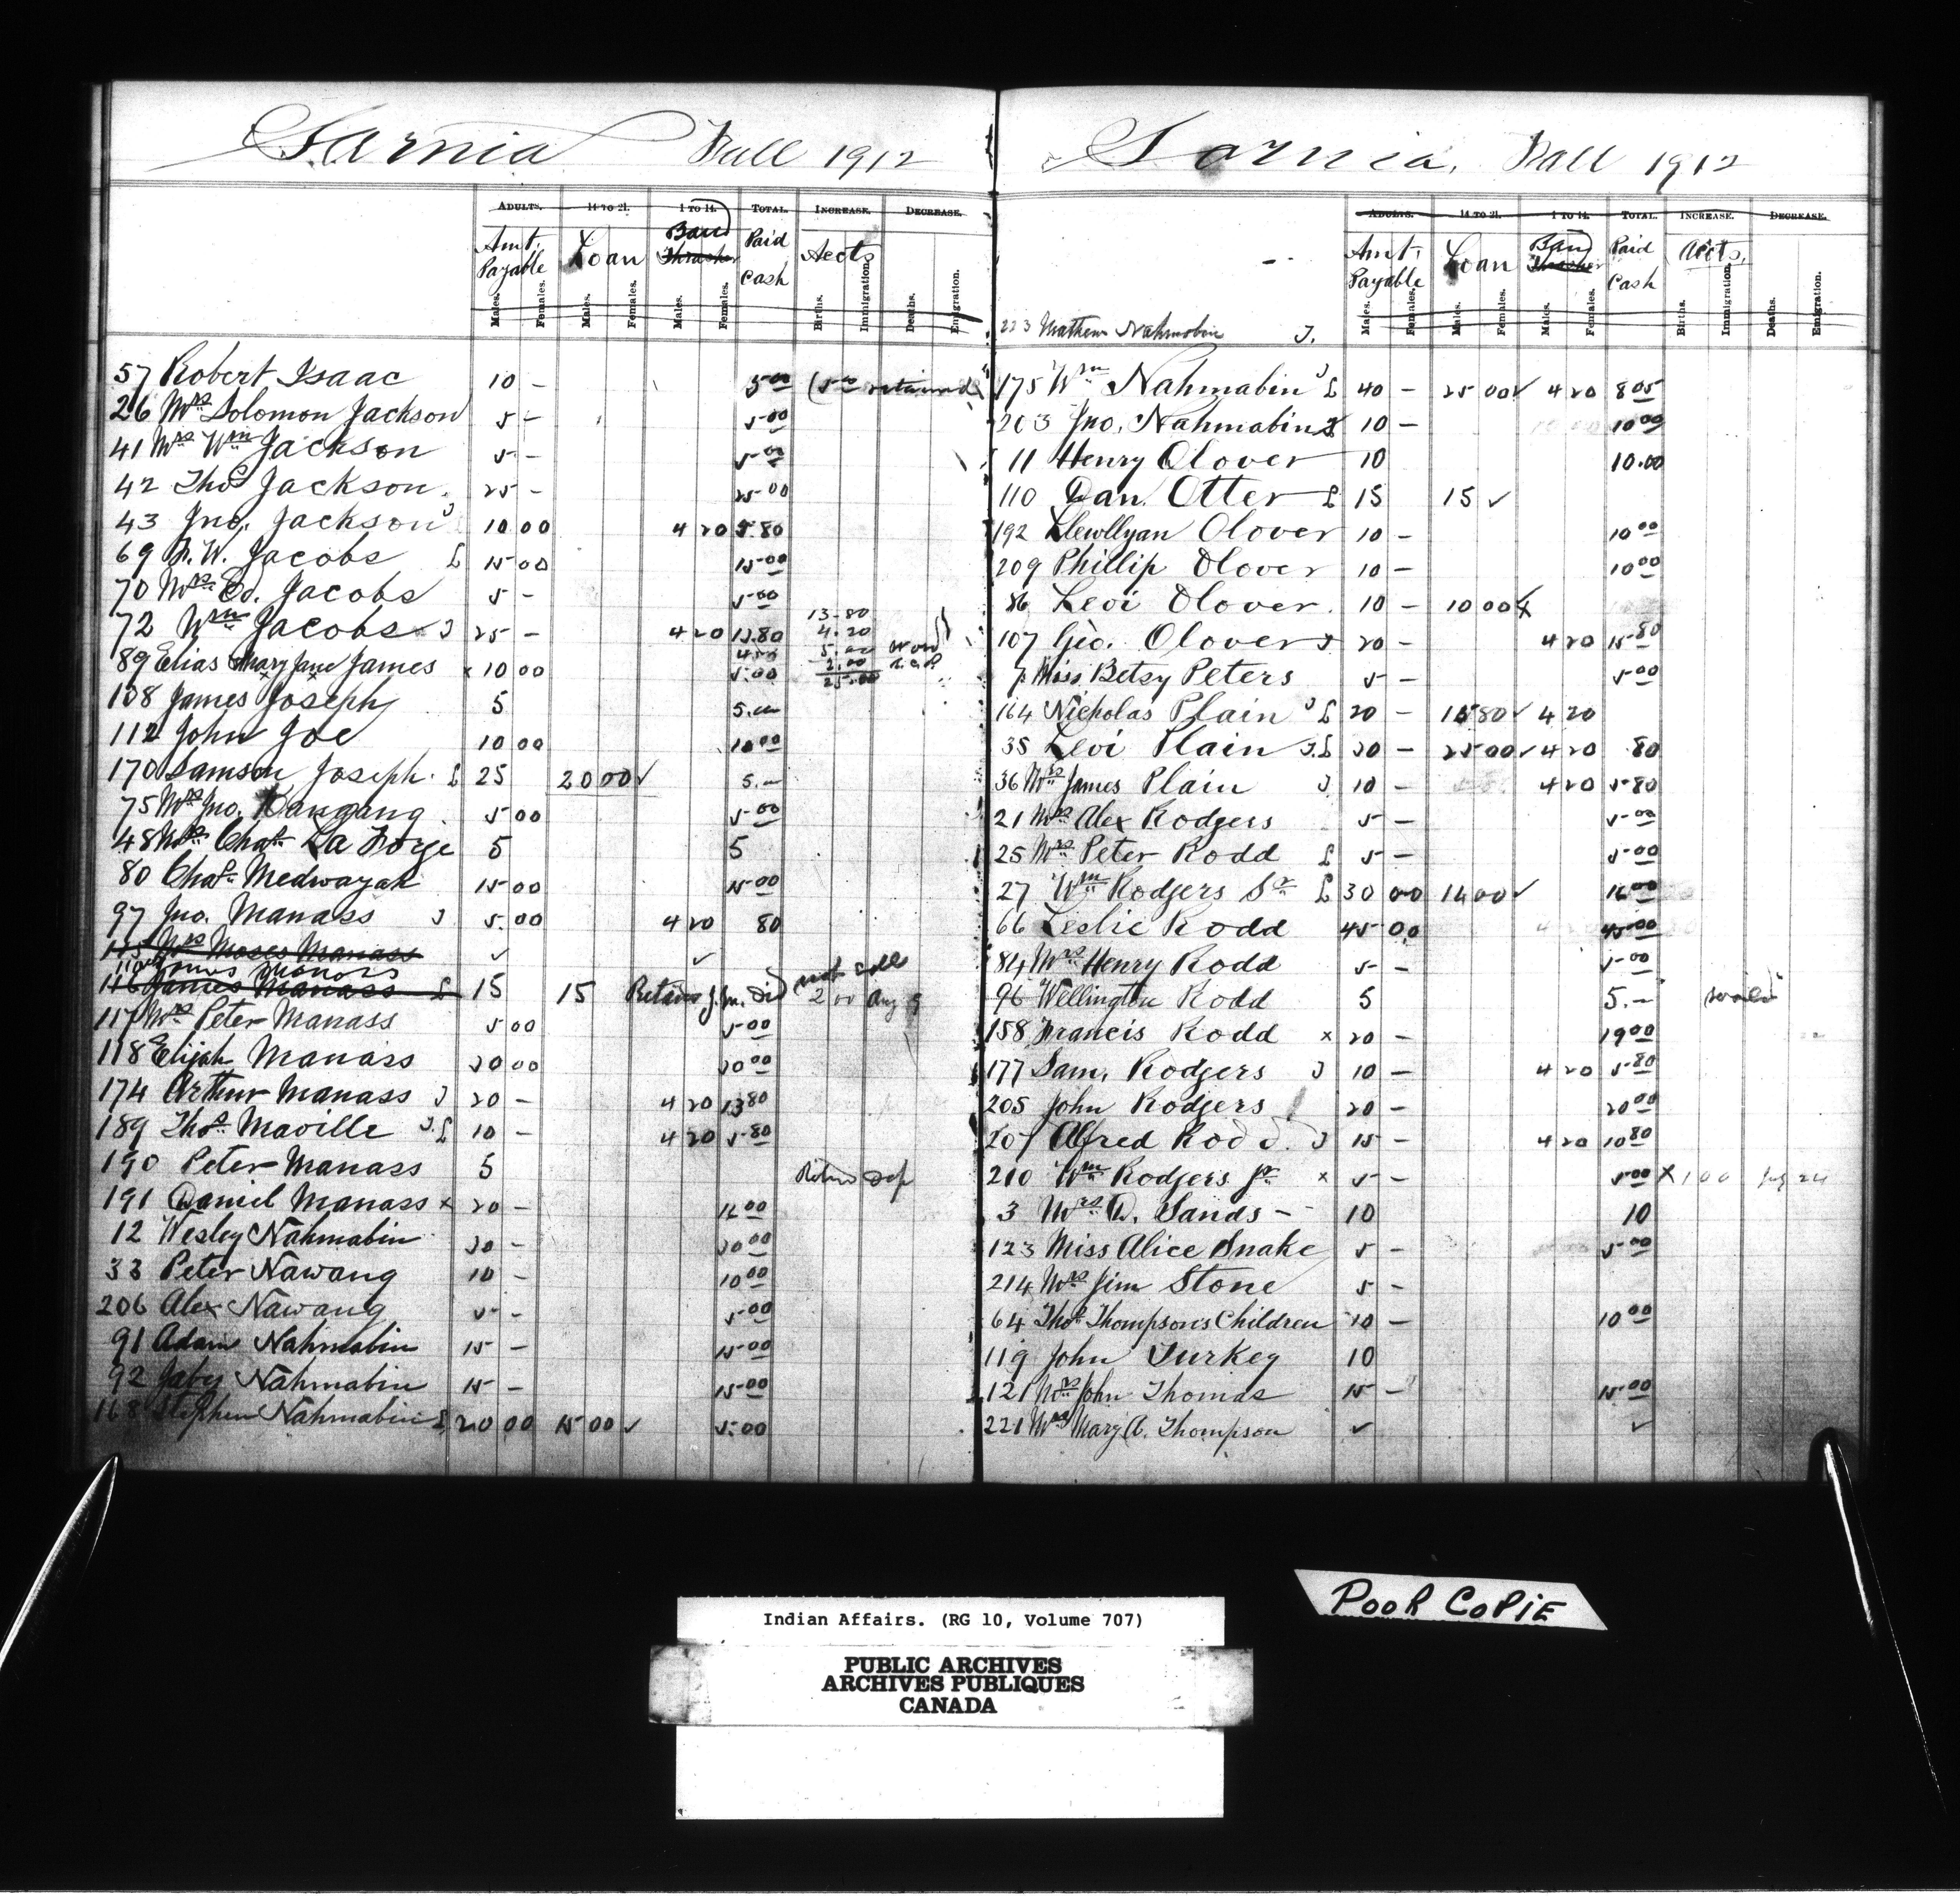 Sarnia Fall 1912
ADULTS. 14 TO 21. 1 TO 14. TOTAL. INCREASE. DECREASE.
Amt. Payable Loan Band Thrasher Paid Cash Accts
Males. Females. Males. Females. Males. Females. Births. Immigration. Deaths. Emigration.
57 Robert Isaac 10 - 5 00 (5 00 retained)
26 Mrs Solomon Jackson 5 - 5 00
41 Mrs Wm Jackson 5 - 5 00
42 Thos Jackson. 25 - 25 00
43 Jno. Jackson J 10 00 4 20 5.80
69 F. W. Jacobs L 15 00 15 00
70 Mrs Ed. Jacobs 5 - 5 00
72 Wm Jacobs J 25 - 4 20 13.80 13.80 4.20 5.00 2.00 25.00
89 Elias Mary Jane James x 10 00 5.00
108 James Joseph 5 5.00
112 John Joe 10 00 10 00
170 Samson Joseph. L 25 20 00 ✓ 5.-
75 Mrs Jno. Kangang 5 00 5 00
48 Mrs Chas La Forge 5 5
80 Chas Medwayah 15 00 15 00
97 Jno. Manass J 5.00 4 20 80
115 Mrs Moses Manass ✓ ✓
116 James Manass
116 James Manass L 15 15 Retain J. M. Did not call 2 00 Aug 9
117 Mrs Peter Manass 5 00 5 00
118 Elijah Manass 20 00 20 00
174 Arthur Manass J 20 - 4 20 13 80
189 Thos Maville J. L 10 - 4 20 5 80
190 Peter Manass 5 Return Dep
191 Daniel Manass x 20 - 16 00
12 Wesley Nahmabin 30 - 30 00
33 Peter Nawang 10 - 10 00
206 Alex Nawang 5 - 5 00
91 Adam Nahmabin 15 - 15 00
92 Jaby Nahmabin 15 - 15 00
168 Stephen Nahmabin L 20 00 15 00 ✓ 5.00
Sarnia. Fall 1912
ADULTS. 14 TO 21. 1 TO 14. TOTAL. INCREASE. DECREASE.
Amt. Payable Loan Band Thrasher Paid Cash Accts.
Males. Females. Males. Females. Males. Females. Births. Immigration. Deaths. Emigration.
223 Mathew Nahmabin J.
175 Wm Nahmabin J L 40 - 25 00 ✓ 4 20 8 05
203 Jno. Nahmabin 10 - 10 00
11 Henry Olover 10 10.00
110 Dan. Otter L 15 15 ✓
192 Llewllyan Olover 10 - 10 00
209 Phillip Olover 10 - 10 00
86 Levi Olover. 10 - 10 00
107 Geo. Olover J 20 - 4 20 15 80
7 Miss Betsy Peters 5 - 5 00
164 Nicholas Plain J L 20 - 15 80 ✓ 4 20
35 Levi Plain J. L 30 - 25 00 ✓ 4 20 80
36 Mrs James Plain J 10 - 4 20 5 80
21 Mrs Alex Rodgers 5 - 5 00
25 Mrs Peter Rodd L 5 - 5 00
27 Wm Rodgers Sr L 30 00 14 00 ✓ 16 00
66 Leslie Rodd 45 00 45 00
84 Mrs Henry Rodd 5 - 5 00
96 Wellington Rodd 5 5.-
158 Francis Rodd x 20 - 19 00
177 Sam. Rodgers J 10 - 4 20 5 80
205 John Rodgers 20 - 20 00
207 Alfred Rodd. J 15 - 4 20 10 80
210 Wm Rodgers Jr x 5 - 5 00 x 1 00 24
3 Mrs D. Sands - 10 10
123 Miss Alice Snake 5 - 5 00
214 Mrs Jim Stone 5 -
64 Thos Thompson's Children 10 - 10 00
119 John Turkey 10
121 Mrs John Thomas 15 - 15 00
221 Mrs Mary A. Thompson ✓ ✓
POOR COPIE
Indian Affairs. (RG 10, Volume 707)
PUBLIC ARCHIVES
ARCHIVES PUBLIQUES
CANADA